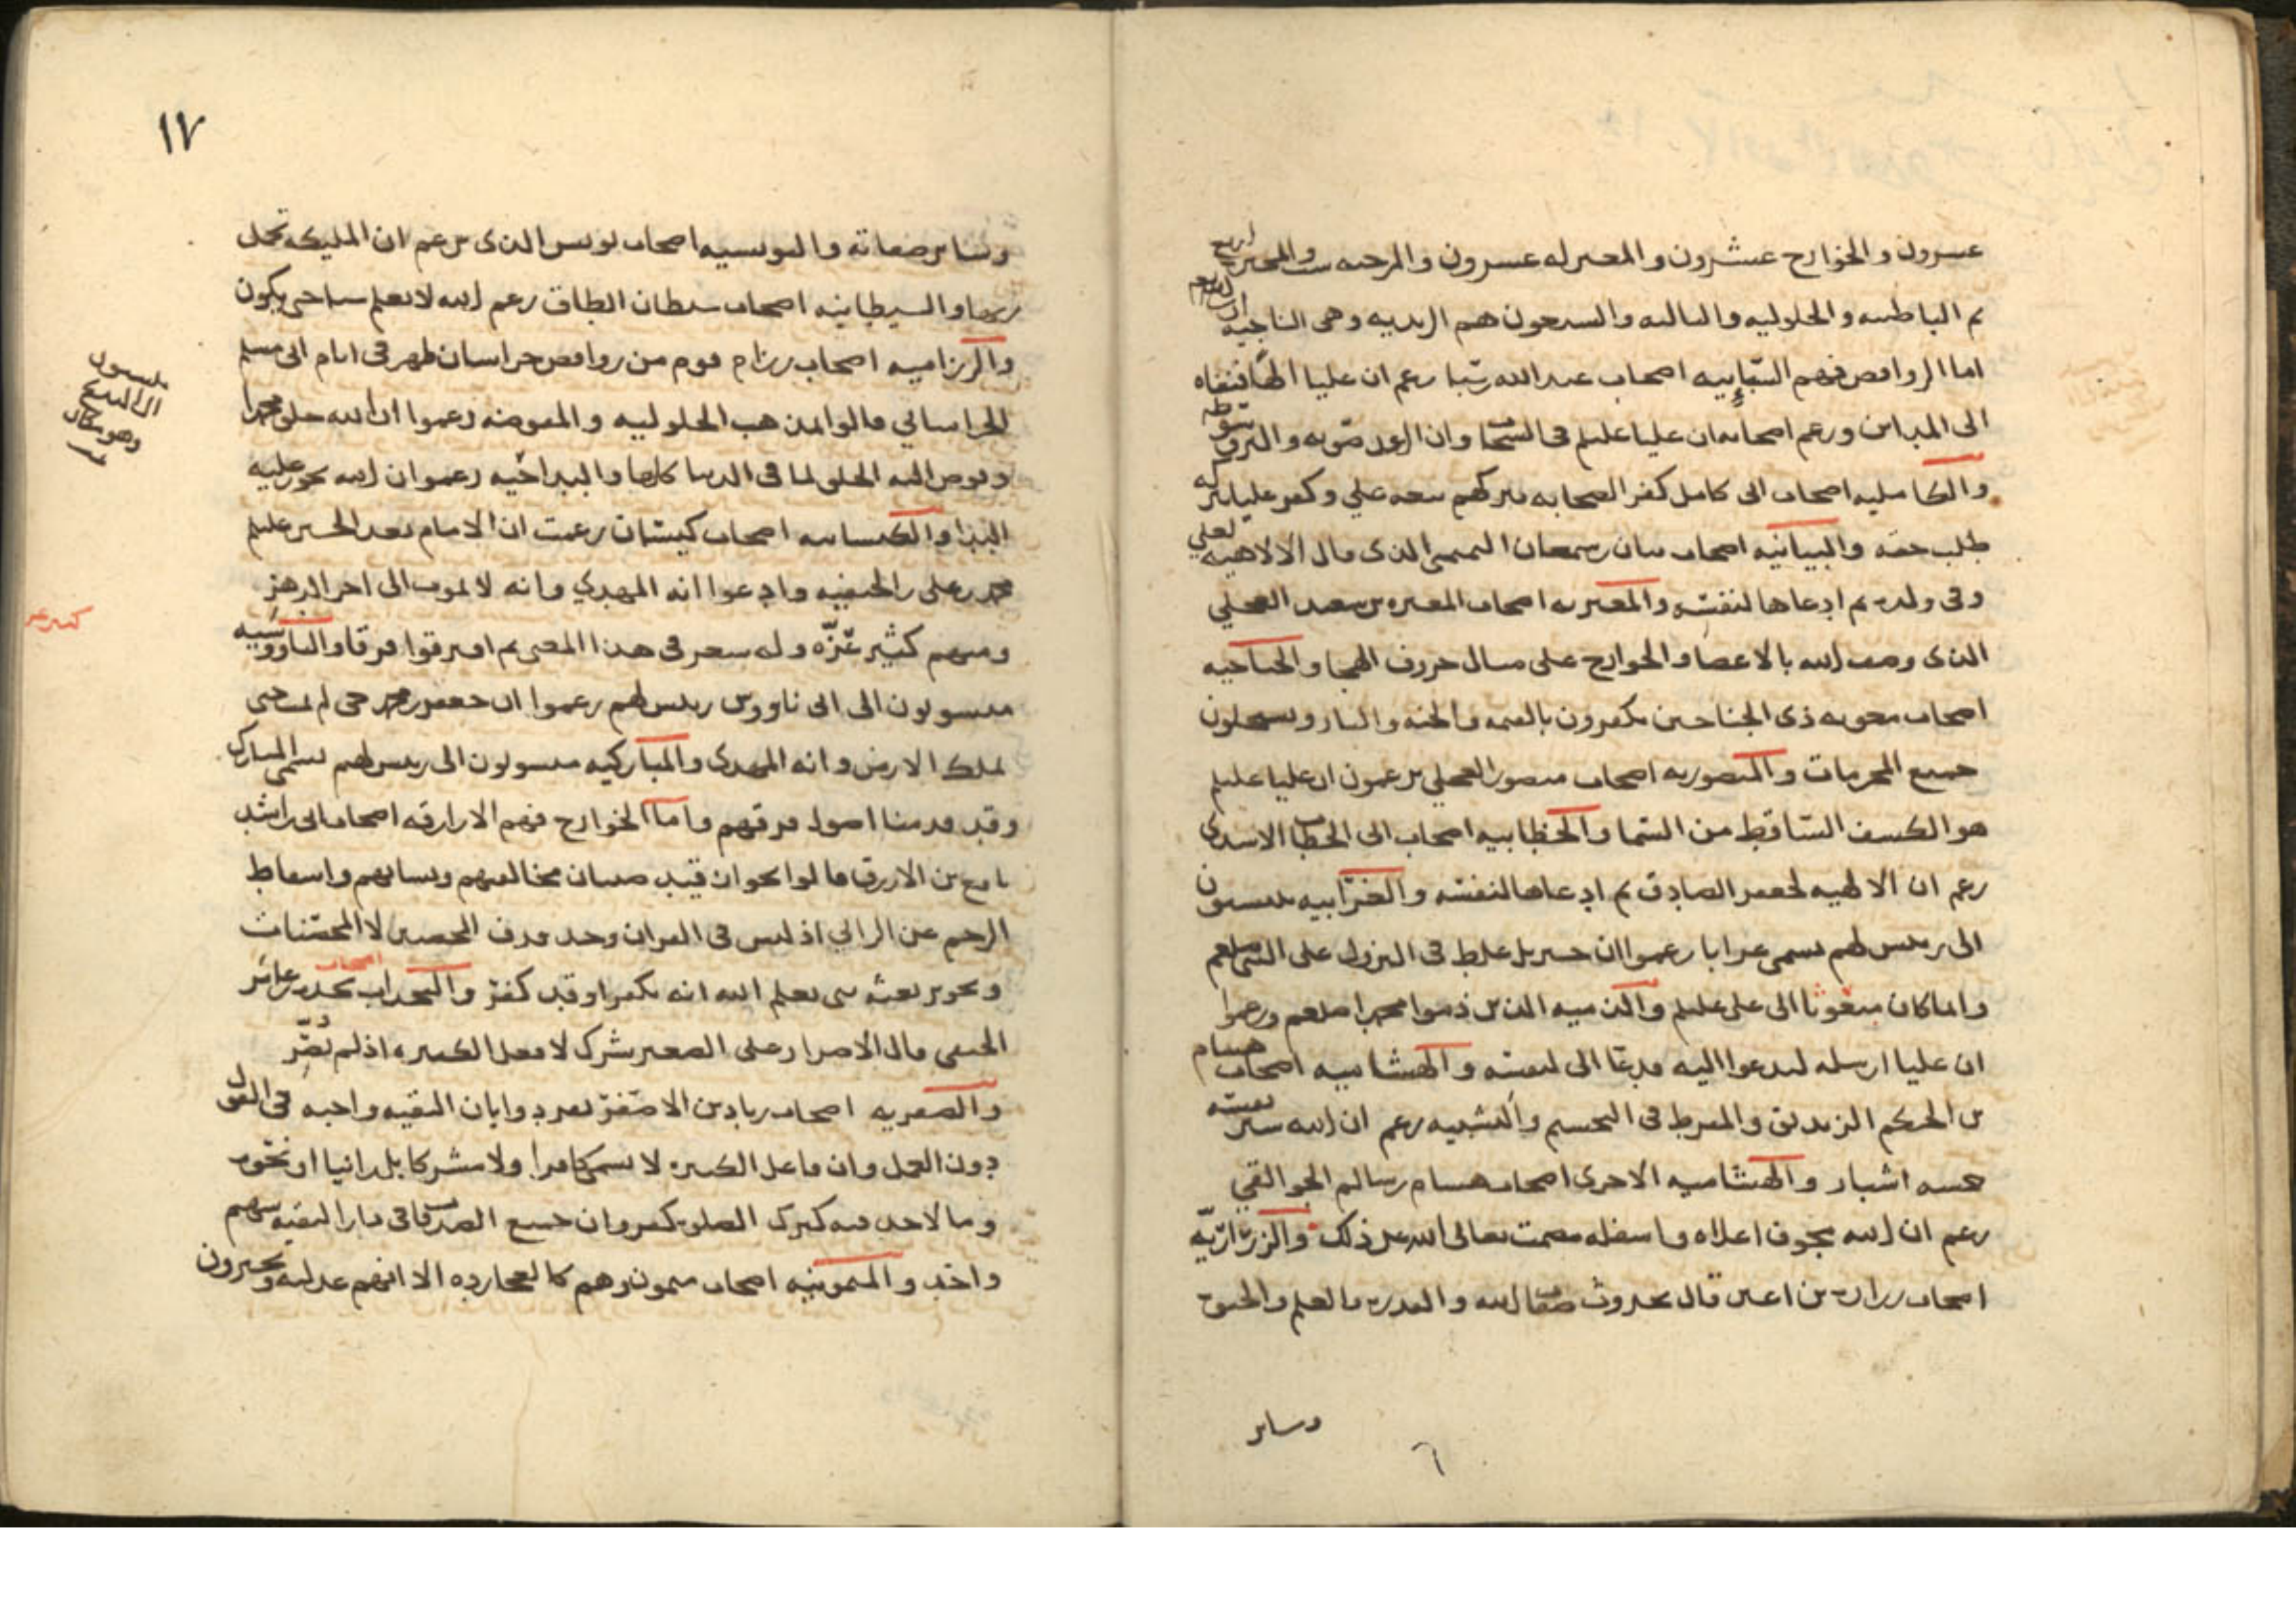 عسرون والخوارج عشرون والمعتزله عسرون والمرجئه ست والمجبره اربع
ثم الباطنيه والحلوليه والسبعون هم الزيديه وهى الناجيه
اما الروافض فمنهم السّبإيّيه اصحاب عبد الله بن سبا زعم ان عليا الهًا فنفاه
الى المداين وزعم اصحابه ان عليا عليلم فى السحاب وان الرعد صوته والبرق سوطه
والكامليه اصحاب ابى كامل كفر الصحابه بتركهم بيعه علي وكفر عليا بتركه
طلب حقه والبيانيه اصحاب بيان بن سمعان التميمى الذى قال الالاهيه لعلي
وفى ولده ثم ادعاها لنفسه والمغيريه اصحاب المغيره بن سعيد العجلي
الذى وصف الله بالاعضا والجوارح على مثال حروف الهجا والجناحيه
اصحاب معويه ذى الجناحين يكفرون بالقيمه والجنه والنار ويستحلون
جميع المحرمات والمنصوريه اصحاب منصور العجلي يزعمون ان عليا عليلم
هو الكسف السّاقط من السّما والخطابيه اصحاب ابى الخطاب الاسدى
زعم ان الالهيه لجعفر الصادق ثم ادعاها لنفسه والغرّابيه ينسبون
الى رييس لهم يسمى غرابا زعموا ان جبريل غلط فى النزول على النبى صلعم
وانما كان مبعوثا الى على عليلم والذميه الذين ذموا محمدا صلعم وزعموا
ان عليا ارسله ليدعوا اليه فدعا الى نفسه والهشاميه اصحاب هشام
بن الحكم الزنديق والمفرط فى التجسيم والتشبيه زعم ان الله بشبر نفسه
خمسه اشبار والهشاميه الاخرى اصحاب هشام بن سالم الجوالقي
زعم ان الله مجوف اعلاه واسفله مصمت تعالى الله عن ذلك والزّراريّه
اصحاب زراره بن اعين قال بحدوث صفات الله والقدره والعلم والحيوه
وساير
٦
١٧
وساير صفاته واليونسيه اصحاب يونس الذى يزعم ان المليكه تحمل
ربها والشيطانيه اصحاب شيطان الطاق زعم الله لا يعلم شيا حتى يكون
والرزاميه اصحاب رزام قوم من روافض خراسان ظهر فى ايام ابى مسلم
الخراساني قالوا بمذهب الحلوليه والمفوضه زعموا ان الله خلق محمدا
وفوض اليه الخلق لما فى الدنيا كلها والبدائيه زعموا ان الله يجوز عليه
البدا والكيسانيه اصحاب كيسان زعمت ان الامام بعد الحسين عليلم
محمد بن على بن الحنفيه وادعوا انه المهدي وانه لا يموت الى اخر الدهر
ومنهم كثير عزّه وله شعر فى هذا المعنى ثم افترقوا فرقا والناووسيه
منسوبون الى ابى ناووس رييس لهم زعموا ان جعفر بن محمد حى لم يمت حتى
يملك الارض وانه المهدى والمباركيه منسوبون الى رييس لهم يسمى المبارك
وقد قدمنا اصول فرقهم واما الخوارج فمنهم الازارقه اصحاب ابى راشد
نافع بن الازرق قالوا بجواز قتل صبيان مخالفيهم ونسايهم واسقاط
الرجم عن الزاني اذ ليس فى القران وحد قذف المحصنين لا المحصنات
وتجويز بعثه نبى يعلم الله انه يكفر او قد كفر والنجدات اصحاب نجده بن عامر
الحنفى قال الاصرار على الصغير شرك لا فعل الكبيره اذ لم يُصِّر
والصفريه اصحاب زياد بن الاصفر تفردوا بان التقيه واجبه فى القول
دون العمل وان فاعل الكبيره لا يسمى كافرا ولا مشركا بل زانيا او نحوه
وما لا حد فيه كترك الصلوه كفر وان جميع الصدقات فى دار التقيه سهم
واحد والميمونيه اصحاب ميمون وهم كالعجارده الا انهم عدليه ويجيزون
ينسبون
الى البديع
وهو مكان
كثير عز